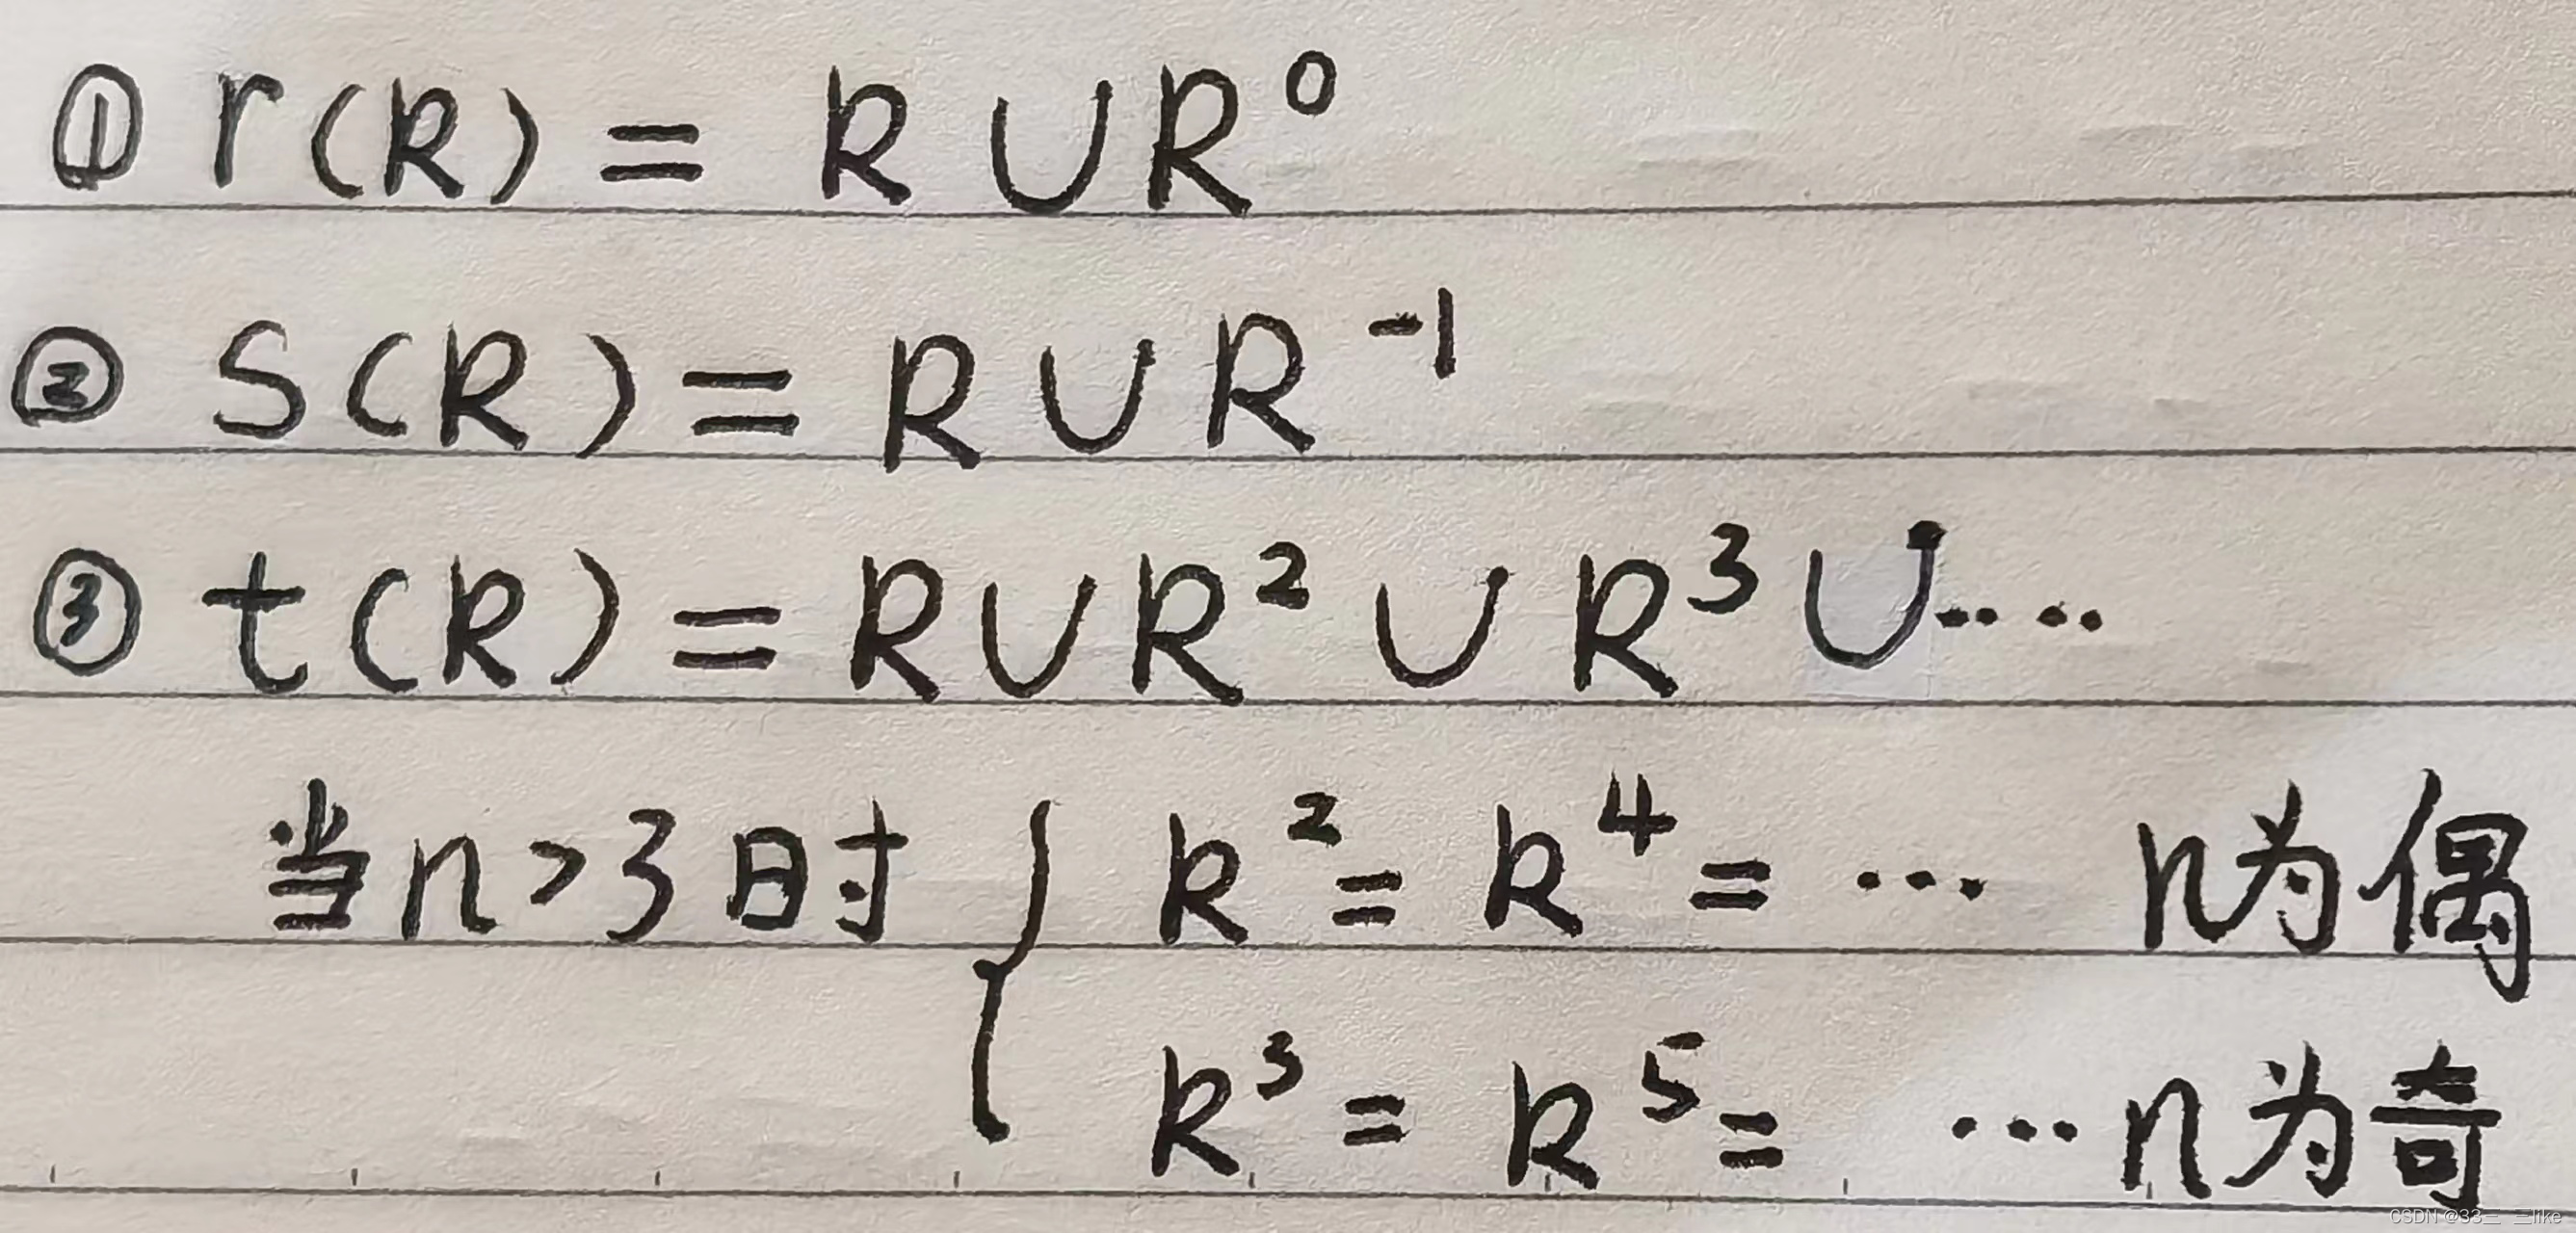 ① r(R) = R ∪ R⁰
② S(R) = R ∪ R⁻¹
③ t(R) = R ∪ R² ∪ R³ ∪ ····
当 n > 3 时 { R² = R⁴ = ··· n为偶
R³ = R⁵ = ··· n为奇
CSDN @33三 三like